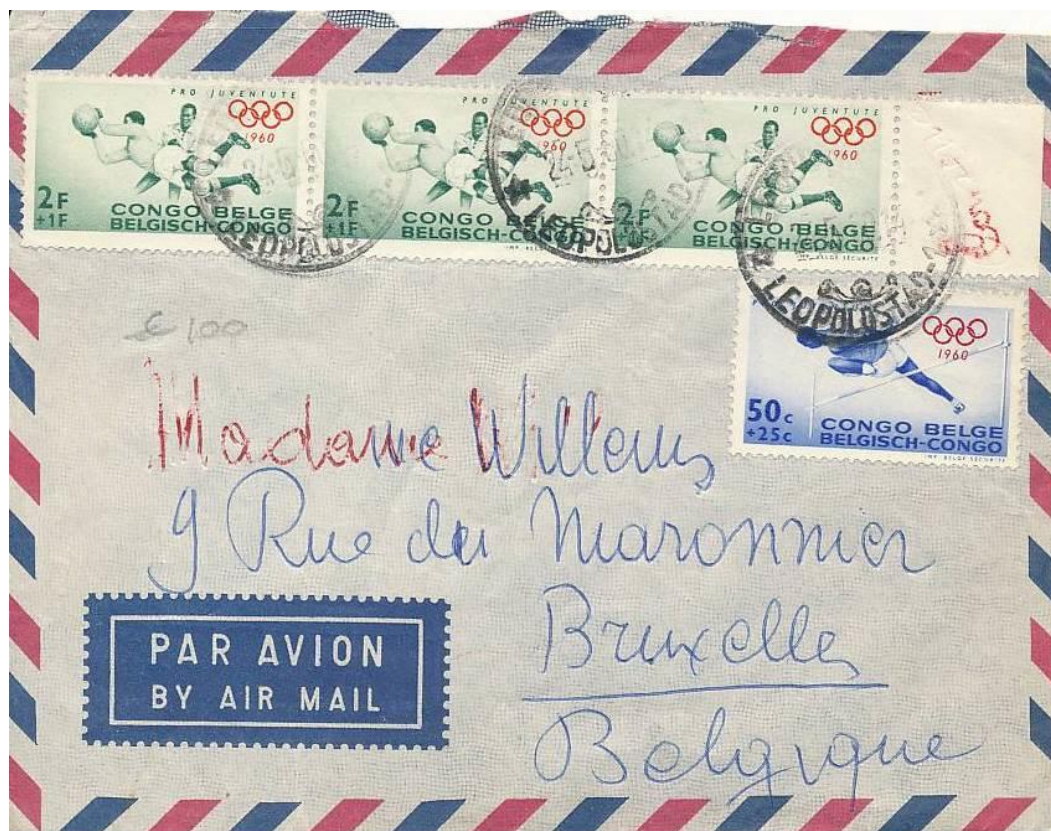 PRO JUVENTUTE
1960
2F
+1F
CONGO BELGE
BELGISCH-CONGO
PRO JUVENTUTE
1960
2F
+1F
CONGO BELGE
BELGISCH-CONGO
IMP. BELGE SÉCURITÉ
PRO JUVENTUTE
1960
2F
+1F
CONGO BELGE
BELGISCH-CONGO
IMP. BELGE SÉCURITÉ
LEOPOLDSTAD
LEOPOLDSTAD
LEOPOLDSTAD-
1960
50c
+25c
CONGO BELGE
BELGISCH-CONGO
IMP. BELGE SÉCURITÉ
€ 100
Madame Willems
9 Rue du Maronnier
Bruxelles
Belgique
PAR AVION
BY AIR MAIL